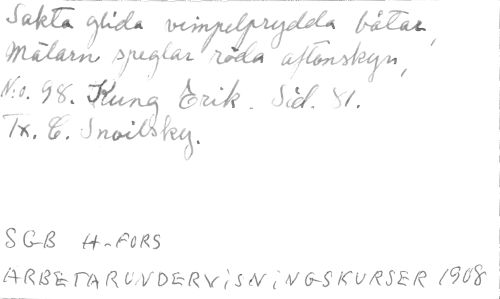 Sakta glida vimpelprydda båtar,
Mälarn speglar röda aftonskyn,
N:o. 98. Kung Erik. Sid. 81.
Tx. C. Snoilsky.
SGB H-FORS
ARBETARUNDERVISNINGSKURSER 1908